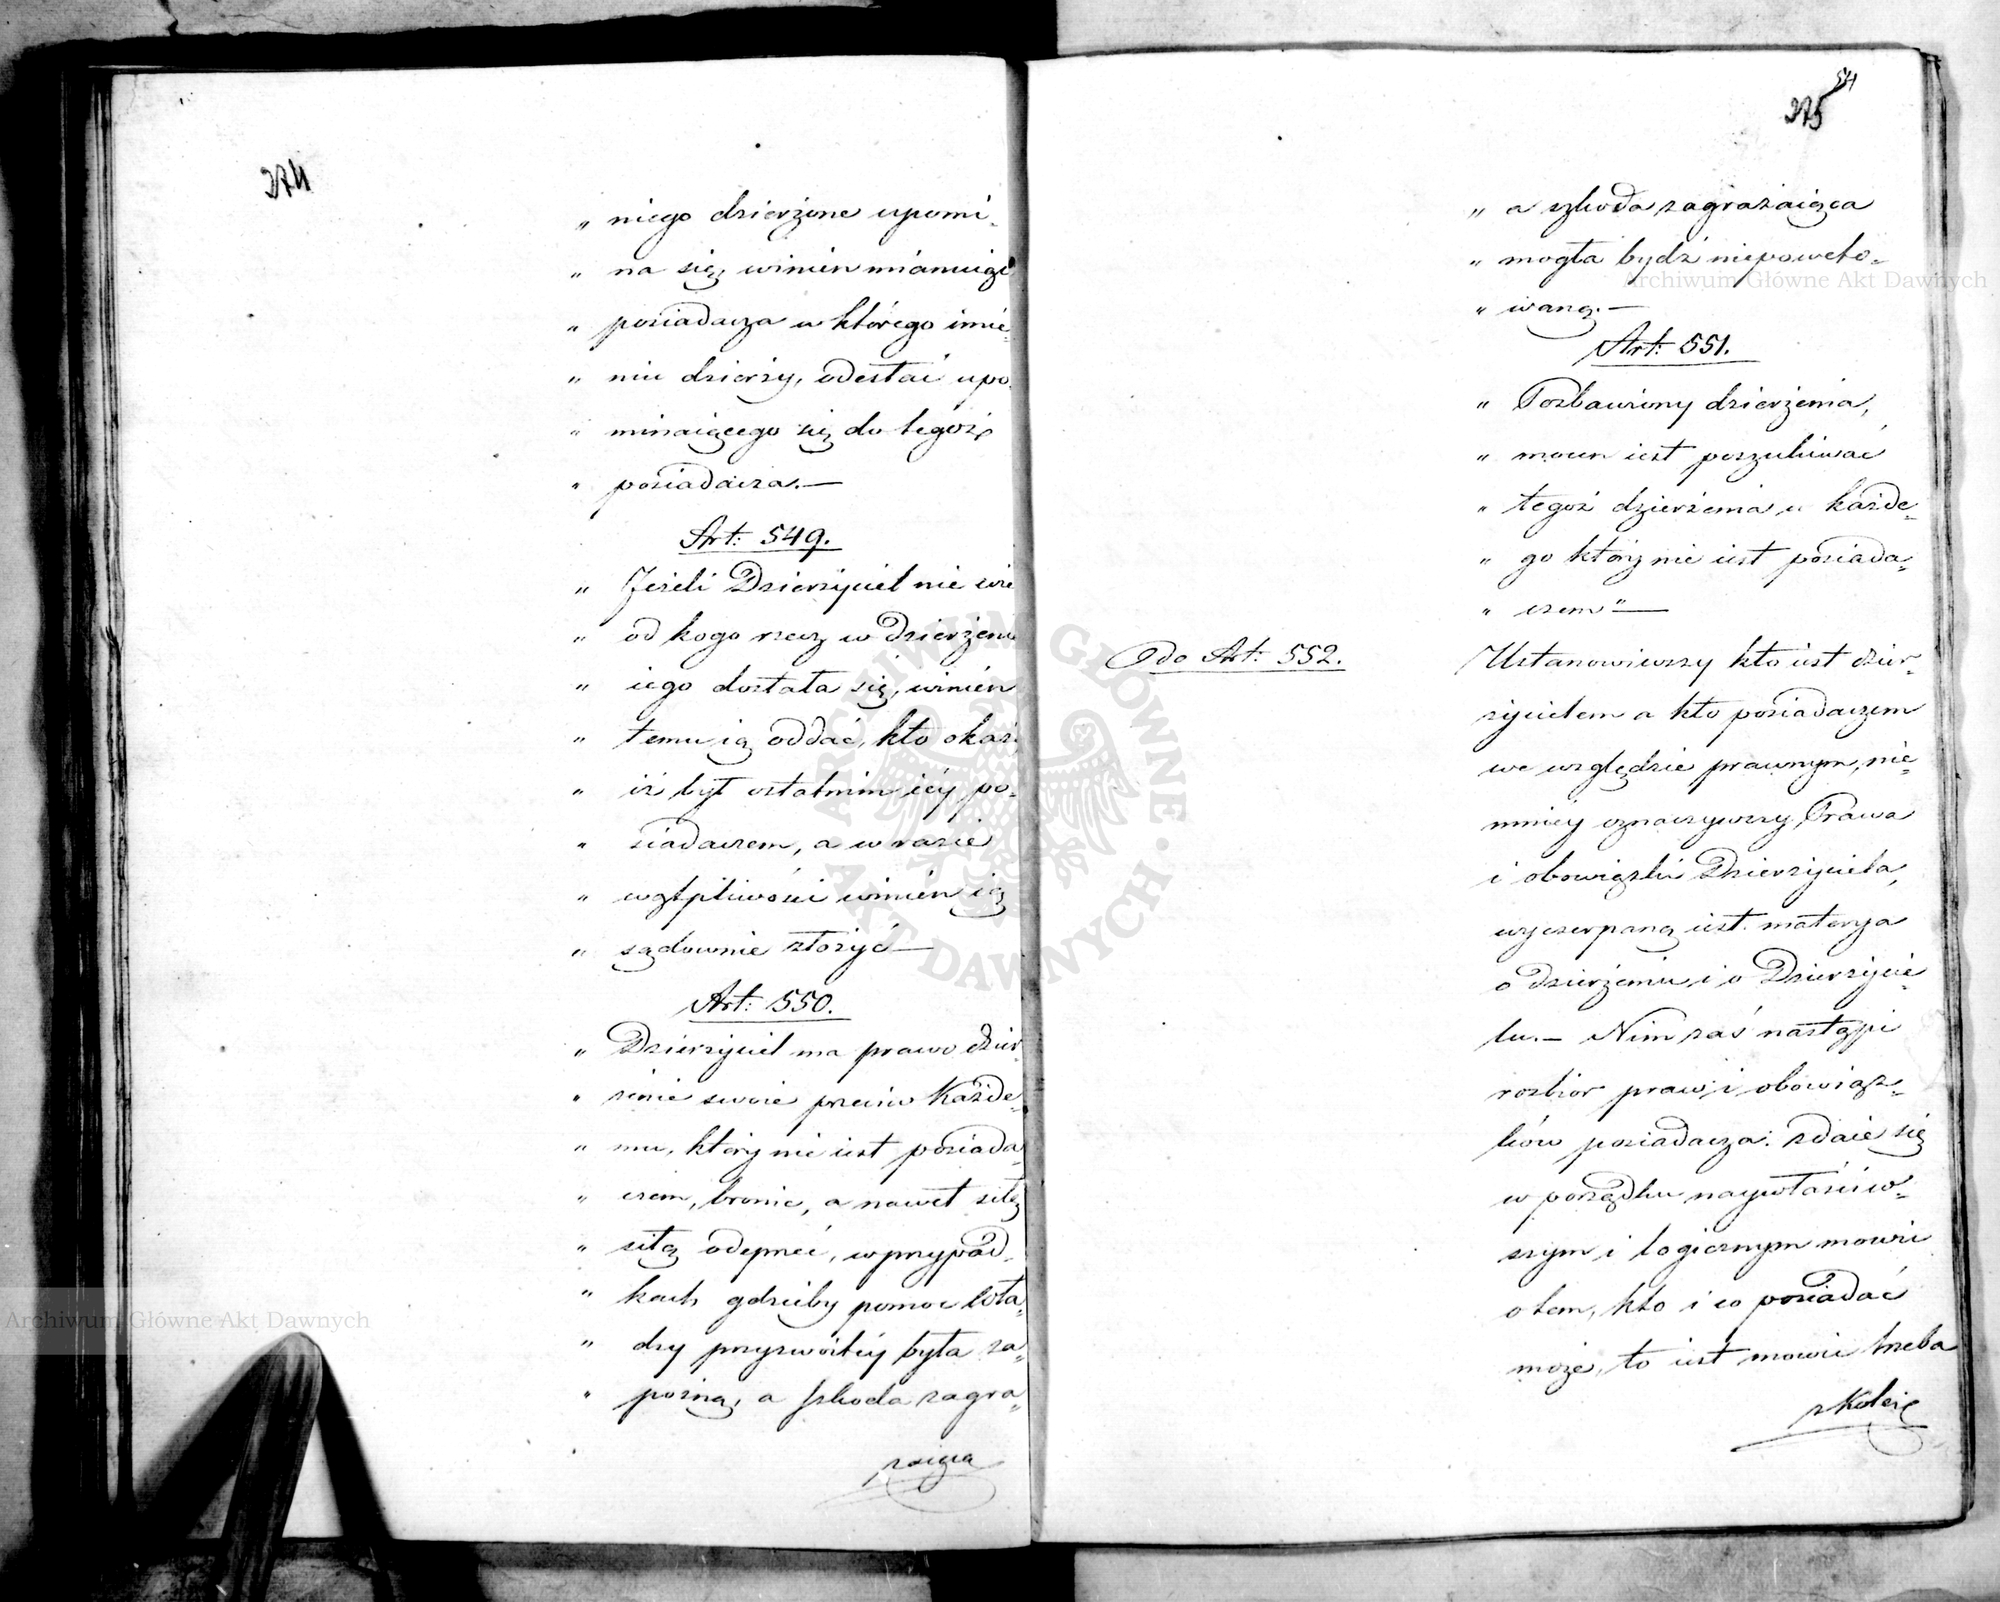 374
„ niego dzierżone upomi-
„ na się, winien mianuiąc
„ posiadacza w którego imie-
„ niu dzierży, odesłać upo-
„ minaiącego się do tegoż
„ posiadacza.—
Art: 549.
„ Jeżeli Dzierżyciel nie wie
„ od kogo rzecz w Dzierżenie
„ iego dostała się, winien
„ temu ią oddać, kto okaże
„ iż był ostatnim iéy po-
„ siadaczem, a w razie
„ wątpliwości winien ią
„ sądownie złożyć—
Art: 550.
„ Dzierżyciel ma prawo dzier-
„ żenie swoie przeciw każde-
„ mu, który nie iest posiada-
„ czem, bronić, a nawet siłę
„ siłą odeprzeć, w przypad-
„ kach gdzieby pomoc wła-
„ dzy przyzwoitéy była za-
„ poźną, a szkoda zagra-
żaiąca
541
375
„ a szkoda zagrażaiąca
„ mogła bydź niepoweto-
„ waną.—
Art: 551.
„ Pozbawiony dzierżenia,
„ mocen iest poszukiwać
„ tegoż dzierżenia u każde-
„ go który nie iest posiada-
„ czem"—
do Art: 552.
Ustanowiwszy kto iest dzier-
życielem a kto posiadaczem
we względzie prawnym, nie-
mniey oznaczywszy Prawa
i obowiązki Dzierżyciela,
wyczerpaną iest materya
o dzierżeniu i o Dzierżycie-
lu.— Nim zaś nastąpi
rozbiór praw i obowiąz-
ków posiadacza: zdaie się
w porządku naywłaściw-
szym i logicznym mowić
o tem, kto i co posiadać
może, to iest mowić trzeba
z Kolei
Archiwum Główne Akt Dawnych
Archiwum Główne Akt Dawnych
ARCHIWUM GŁÓWNE AKT DAWNYCH